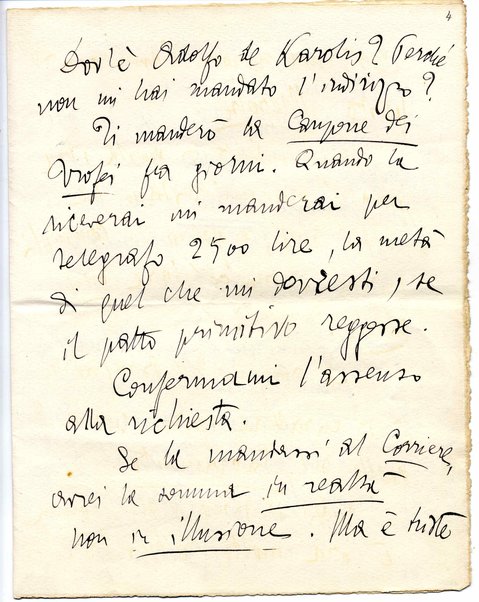 4
Dov'è Adolfo de Karolis? Perché
non mi hai mandato l'indirizzo?
Ti manderò la Canzone dei
Trofei fra giorni. Quando la
riceverai mi manderai per
telegrafo 2500 lire, la metà
di quel che mi dovresti, se
il patto primitivo reggesse.
Confermami l'assenso
alla richiesta.
Se la mandassi al Corriere,
avrei la somma in realtà
non in illusione. Ma è triste